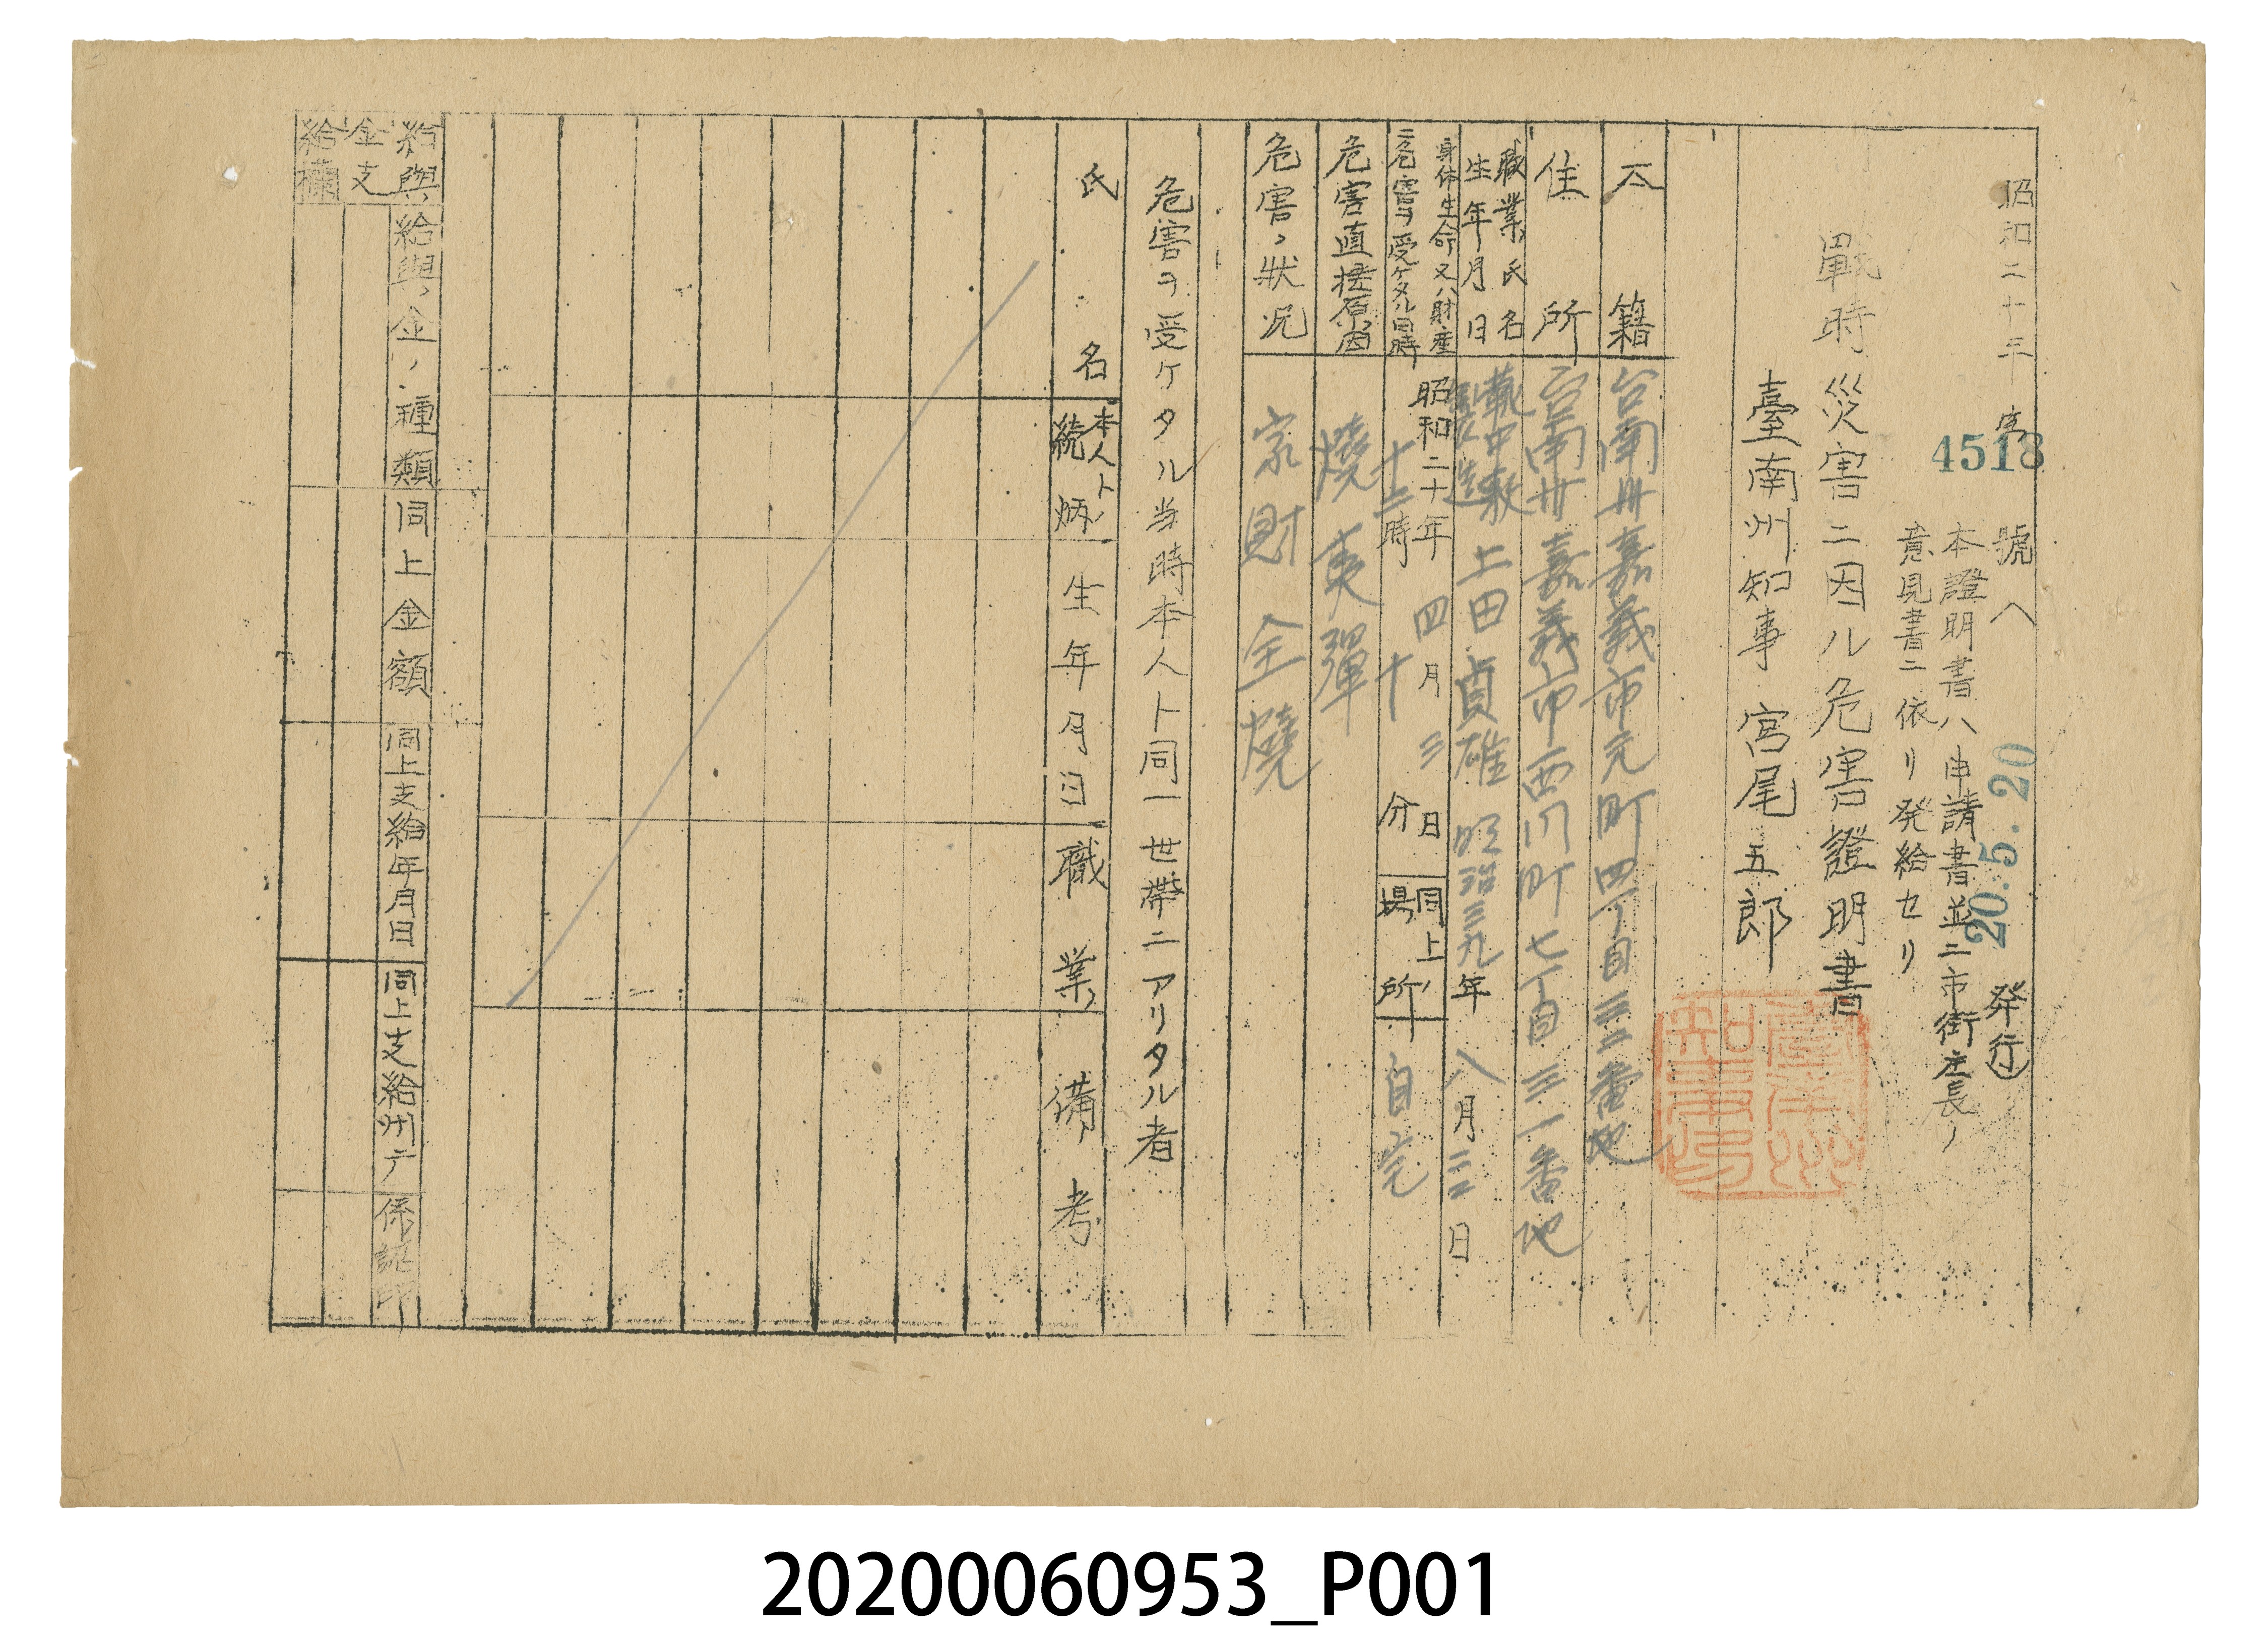 昭和二十年 南 4518 號ノ 20.5.20 発行
本證明書ハ申請書並ニ市街庄長ノ
意見書ニ依リ発給セリ
戰時災害ニ因ル危害證明書
臺南州知事 宮尾五郎
臺南州知事印
本籍 台南州嘉義市元町四丁目三三番地
住所 台南州嘉義市西門町七丁目三一番地
職業氏名
生年月日
土田貞雄 明治三九年八月三日
身体生命又ハ財産
ニ危害ヲ受ケタル日時
昭和二十年四月三日
十二時十分
同上ノ
場所
自宅
危害直接原因 燒夷彈
危害ノ狀況 家財全燒
危害ヲ受ケタル当時本人ト同一世帶ニアリタル者
氏名 本人トノ続柄 生年月日 職業 備考
給與金支給欄
給與金ノ種類 同上金額 同上支給年月日 同上支給州庁 係認印
20200060953_P001